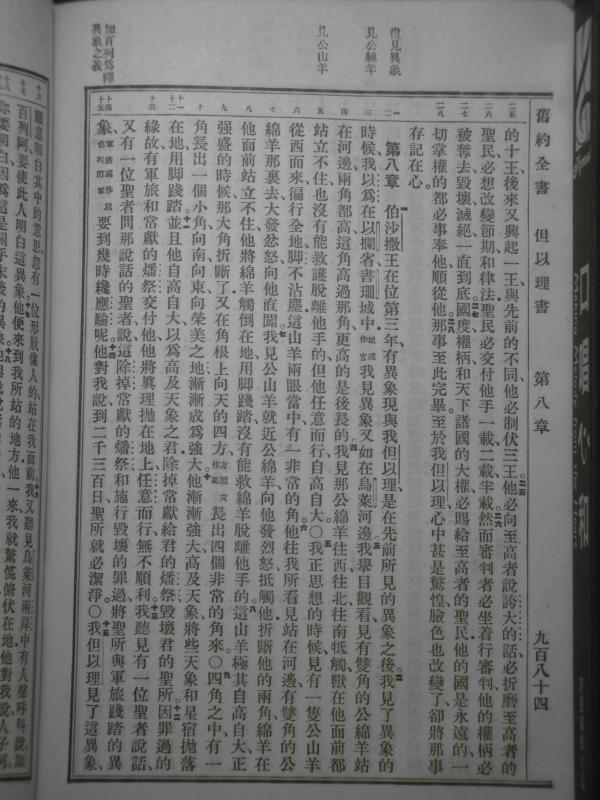 舊約全書 但以理書 第八章 九百八十四
的十王後來又興起一王與先前的不同他必制伏三王他必向至高者說誇大的話必折磨至高者的
聖民必想改變節期和律法聖民必交付他手一載二載半載然而審判者必坐着行審判他的權柄必
被奪去毀壞滅絕一直到底國度權柄和天下諸國的大權必賜給至高者的聖民他的國是永遠的一
切掌權的都必事奉他順從他那事至此完畢至於我但以理心中甚是驚惶臉色也改變了卻將那事
存記在心
第八章 伯沙撒王在位第三年有異象現與我但以理是在先前所見的異象之後我見了異象的
時候我以為在以攔省書珊城中我見異象又如在烏萊河邊我舉目觀看見有雙角的公綿羊站
在河邊兩角都高這角高過那角更高的是後長的我見那公綿羊往西往北往南抵觸獸在他面前都
站立不住也沒有能救護脫離他手的但他任意而行自高自大〇我正思想的時候見有一隻公山羊
從西而來徧行全地腳不沾塵這山羊兩眼當中有一非常的角他往我所看見站在河邊有雙角的公
綿羊那裏去大發忿怒向他直闖我見公山羊就近公綿羊向他發烈怒抵觸他折斷他的兩角綿羊在
他面前站立不住他將綿羊觸倒在地用腳踐踏沒有能救綿羊脫離他手的這山羊極其自高自大正
强盛的時候那大角折斷了又在角根上向天的四方長出四個非常的角來〇四角之中有一
角長出一個小角向南向東向榮美之地漸漸成為強大他漸漸強大高及天象將些天象和星宿拋落
在地用腳踐踏並且他自高自大以為高及天象之君除掉常獻給君的燔祭毀壞君的聖所因罪過的
緣故有軍旅和常獻的燔祭交付他他將真理拋在地上任意而行無不順利我聽見有一位聖者說話
又有一位聖者問那說話的聖者說這除掉常獻的燔祭和施行毀壞的罪過將聖所與軍旅踐踏的異
象要到幾時纔應驗呢他對我說到二千三百日聖所就必潔淨〇我但以理見了這異象
願意明白其中的意思忽有一位形狀像人的站在我面前我又聽見烏萊河兩岸中有人聲呼叫說加
百列阿要使此人明白這異象他便來到我所站的地方他一來我就驚慌俯伏在地他對我說人子阿
復見異象
見公綿羊
見公山羊
加百列為釋
異象之義